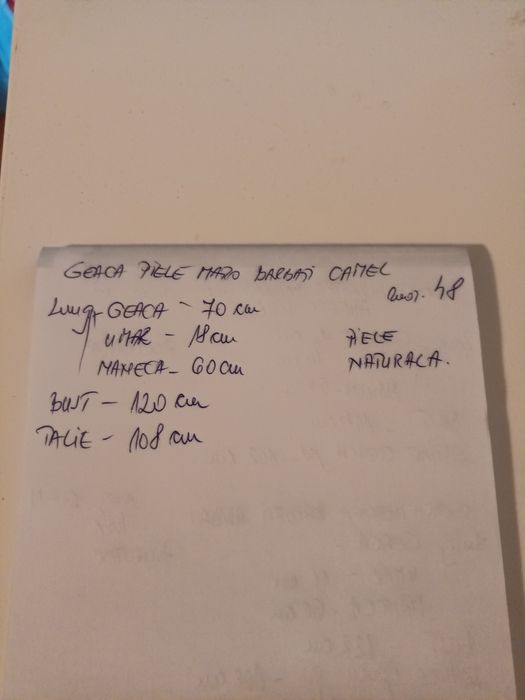 GEACA PIELE MARO BARBAȚI CAMEL
48
Lung GEACA - 70 cm
UMAR - 18 cm
PIELE
MANECA - 60 cm
NATURALA.
BUST - 120 cm
TALIE - 108 cm